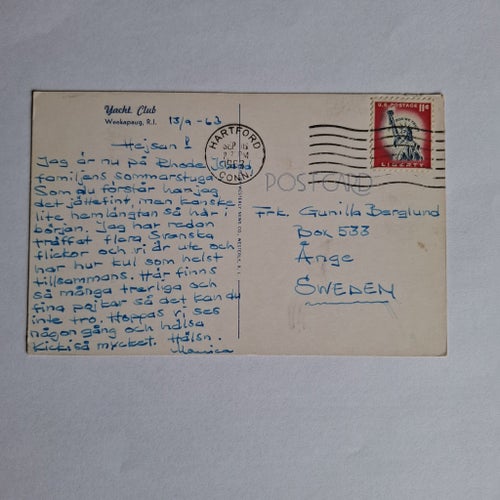 Yacht Club
Weekapaug, R.I.
13/9 - 63
Hejsan!
Jag är nu på Rhode Island
familjens sommarstuga
Som du förstår har jag
det jättefint, men kanske
lite hemlängtan så här i
början. Jag har redan
träffat flera Svenska
flickor och vi är ute och
har hur kul som helst
tillsammans. Här finns
så många trevliga och
fina pojkar så det kan du
inte tro. Hoppas vi ses
någon gång och hälsa
Kicki så mycket. Hälsn.
Monica
HARTFORD
SEP 16
PM
1963
CONN.
U.S. POSTAGE 11¢
LIBERTY
POSTCARD
Frk. Gunilla Berglund
Box 533
Ånge
SWEDEN